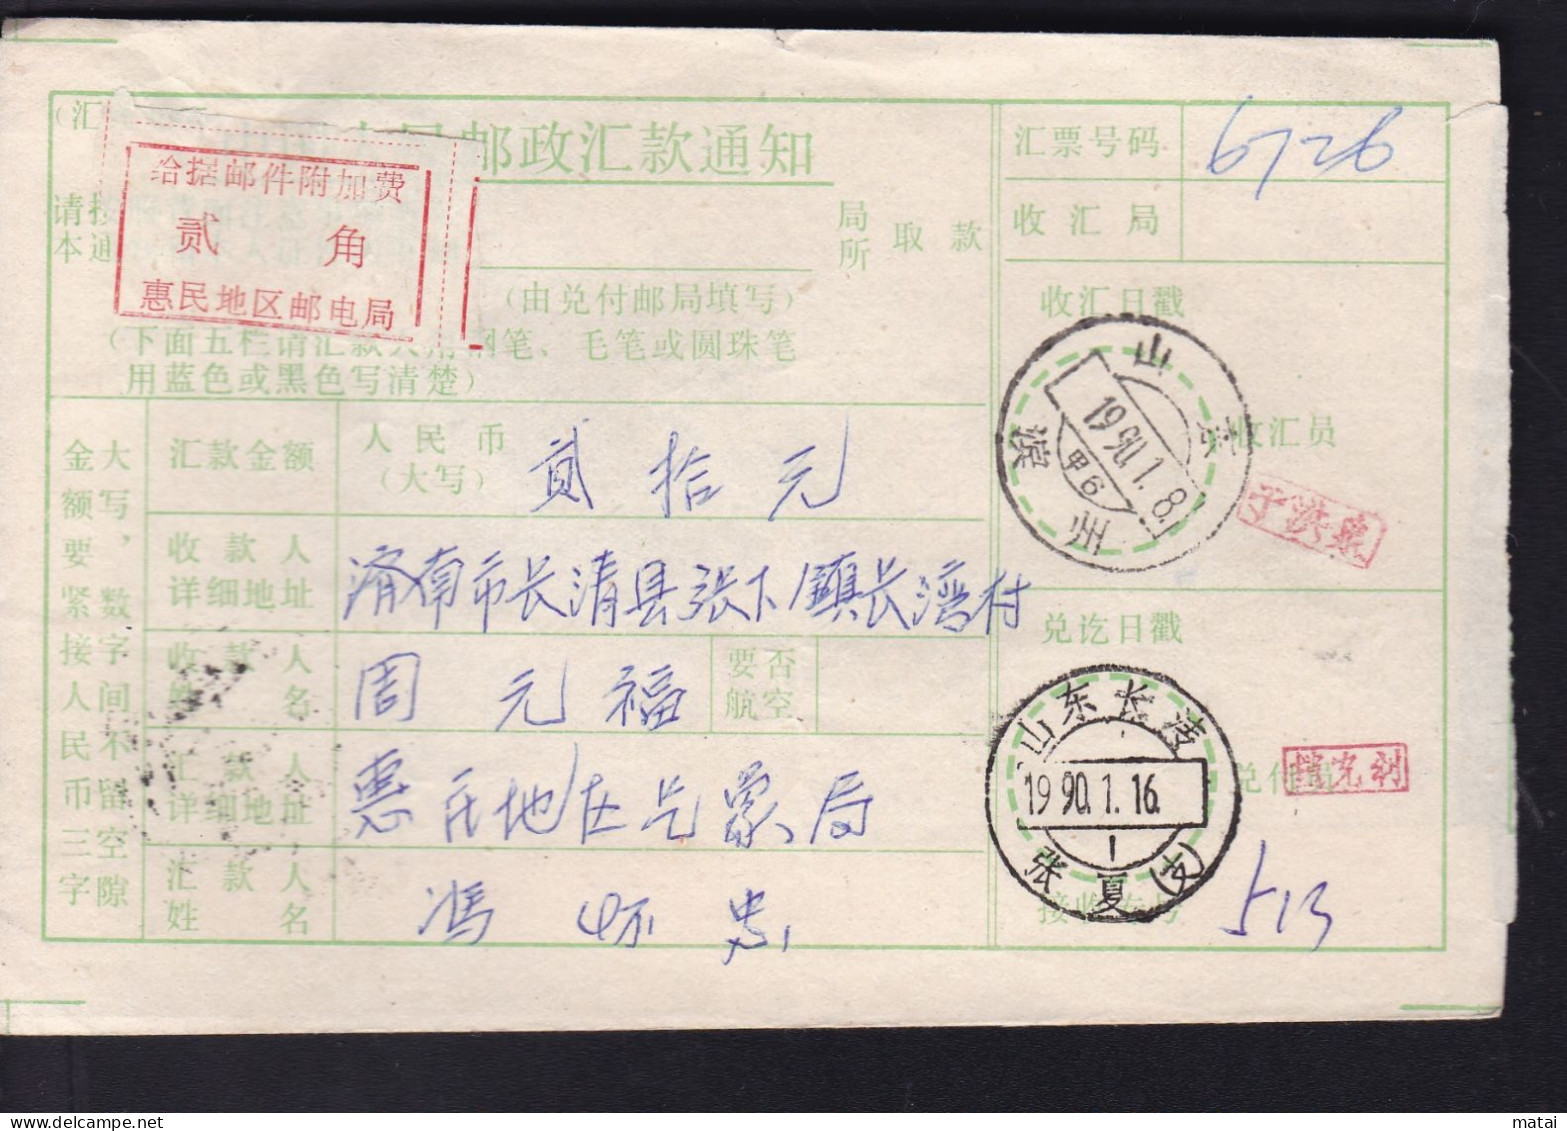 (汇
邮政汇款通知
给据邮件附加费
贰 角
惠民地区邮电局
请按
本通
局所 取款
(由兑付邮局填写)
(下面五栏请汇款人用钢笔、毛笔或圆珠笔
用蓝色或黑色写清楚)
大写,数字间不留空隙
金额要紧接人民币三字
汇款金额
人民币
(大写)
贰拾元
收款人
详细地址
济南市长清县张下镇长湾村
收款人
姓名
周元福
要否
航空
汇款人
详细地址
惠民地区气象局
汇款人
姓名
冯怀忠
汇票号码 6726
收汇局
收汇日戳
山东
1990.1.8.
甲6
滨州
收汇员
于洪泉
兑讫日戳
山东长清
1990.1.16.
1
张夏(支)
兑付员
接收专号 513
matai